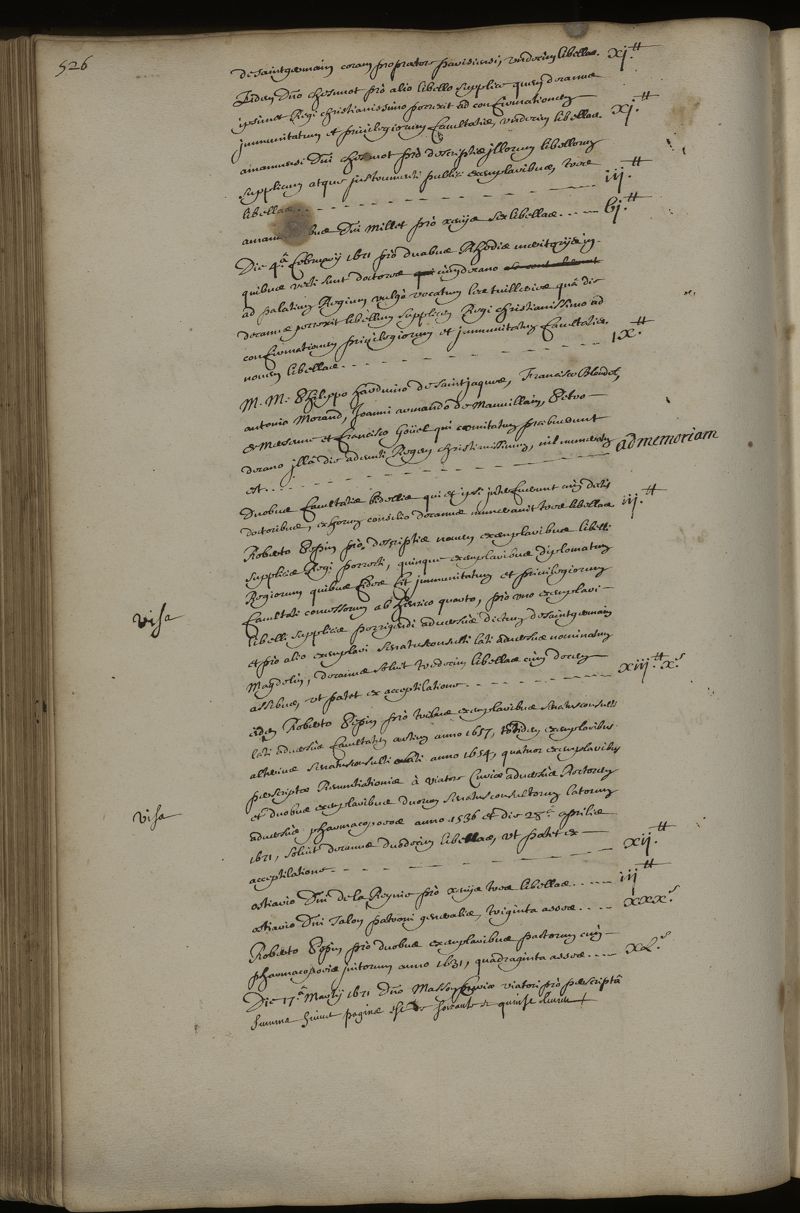 526
de saintgermain coram proprætore parisiensi, undecim libellas. xj.tt
Eidem Dno Chesmot pro alio libello supplice quem decanus
ipsimet Regi christianissimo porrexit ad confirmationem
immunitatum et privilegiorum facultatis, undecim libellas xj.tt
amanuensi Dni Chesmot pro descriptis illorum libellorum
supplicum atque instrumenti publici exemplaribus, tres
libellas - - - iij.tt
Dni Millet pro xenijs sex libellas - - - bj.tt
Die 4.a februarij 1671 pro duabus Rhedis meritorijs in
quibus vecti sunt doctores cum decano
ad palatium Regium vulgo vocatum les tuilleries qua die
decanus porrexit libellum supplicem Regi christianissimo ad
confirmationem privilegiorum et immunitatum facultatis.
novem libellas - - - ix.tt
M. M. Philippo harduino de saintjaques, Francisco Blondel,
antonio Morand, Joanni armando de Mauvillain, Petro
et Francisco Goüel qui comitatum præbuerunt
decano illa die adeunti Regem christianissimum, nil numeratum
est - - - ad memoriam
Duobus facultatis bidellis qui et ipsi interfuerunt cum dictis
doctoribus, ex horum consilio decanus numeravit tres libellas iij.tt
Roberto Pepin pro descriptis novem exemplaribus libelli
supplicis Regi porrecti, quinque exemplaribus diplomatum
Regiorum quibus fides fit immunitatum et privilegiorum
facultati concessorum ab henrico quarto, pro uno exemplari
libelli supplicis porrigendi adversus dictum de saintgermain
et pro alio exemplari senatusconsulti lati adversus nominatum
Magdelin, decanus solvit tredecim libellas cum decem
assibus, ut patet ex acceptilatione - - - xiij.tt x.s
visa
eidem Roberto Pepin pro tribus exemplaribus senatusconsulti
lati adversus facultatem anno 1657, totidem exemplaribus
alterius senatusconsulti lati anno 1654, quatuor exemplaribus
præscriptæ Renuntiationis à viatore Curiæ adversus Rectorem
et duobus exemplaribus duorum senatusconsultorum latorum
adversus pharmacopoeos anno 1536 et die 28.a aprilis
1671, solvit decanus duodecim libellas, ut patet ex
acceptilatione - - - xij.tt
visa
ostiario Dni de la Reynie pro xenijs tres libellas - - - iij.tt
ostiario Dni Talon patroni generalis, triginta asses - - - xxx.s
Roberto Pepin pro duobus exemplaribus pactorum cum
pharmacopoeis initorum anno 1631, quadraginta asses - - - xL.s
Die 17.a Martij 1671 Dno Masson Curiæ viatori pro præscripta
summa huius paginæ est de soixante et quinse livres